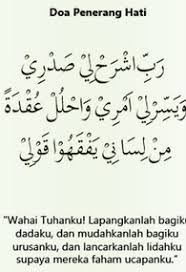 Doa Penerang Hati
رَبِّ اشْرَحْ لِيْ صَدْرِيْ
وَيَسِّرْلِيْ اَمْرِيْ وَاحْلُلْ عُقْدَةً
مِنْ لِسَانِيْ يَفْقَهُوْا قَوْلِيْ
"Wahai Tuhanku! Lapangkanlah bagiku
dadaku, dan mudahkanlah bagiku
urusanku, dan lancarkanlah lidahku
supaya mereka faham ucapanku."